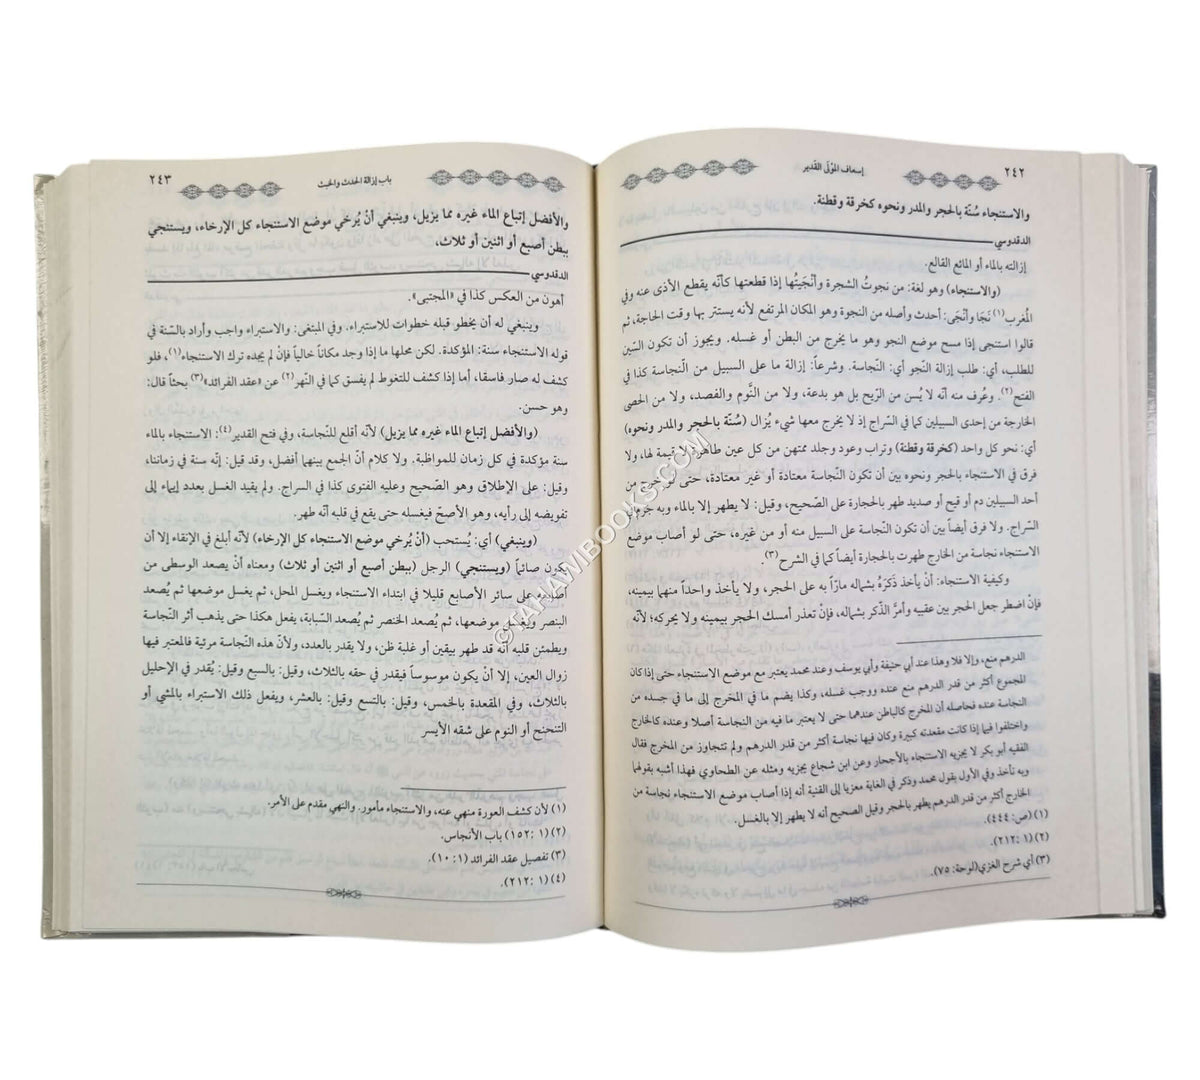 ٢٤٢
إسعاف المَوْلى القدير
والاستنجاء سُنّة بالحجر والمدر ونحوه كخرقة وقطنة.
الدقدوسي
إزالته بالماء أو المائع القالع.
(والاستنجاء) وهو لغة: من نجوتُ الشجرة وأنْجَيتُها إذا قطعتها كأنّه يقطع الأذى عنه وفي
المُغرب(١) نَجَا وأنْجَى: أحدث وأصله من النجوة وهو المكان المرتفع لأنه يستتر بها وقت الحاجة، ثم
قالوا استنجى إذا مسح موضع النجو وهو ما يخرج من البطن أو غسله. ويجوز أن تكون السّين
للطلب، أي: طلب إزالة النجو أي: النّجاسة. وشرعاً: إزالة ما على السبيل من النّجاسة كذا في
الفتح(٢). وعُرف منه أنّه لا يُسن من الرّيح بل هو بدعة، ولا من النَّوم والفصد، ولا من الحصى
الخارجة من إحدى السبيلين كما في السّراج إذ لا يخرج معها شيء يُزال (سُنّة بالحجر والمدر ونحوه)
أي: نحو كل واحد (كخرقة وقطنة) وتراب وعود وجلد ممتهن من كل عين طاهرة لا قيمة لها، ولا
فرق في الاستنجاء بالحجر ونحوه بين أن تكون النّجاسة معتادة أو غير معتادة، حتى لو خرج من
أحد السبيلين دم أو قيح أو صديد طهر بالحجارة على الصّحيح، وقيل: لا يطهر إلا بالماء وبه جزم في
السّراج. ولا فرق أيضاً بين أن تكون النّجاسة على السبيل منه أو من غيره، حتى لو أصاب موضع
الاستنجاء نجاسة من الخارج طهرت بالحجارة أيضاً كما في الشرح(٣).
وكيفية الاستنجاء: أنْ يأخذ ذَكَرَهُ بشماله مارّاً به على الحجر، ولا يأخذ واحداً منهما بيمينه،
فإنْ اضطر جعل الحجر بين عقبيه وأمرّ الذّكر بشماله، فإنْ تعذر أمسك الحجر بيمينه ولا يحركه؛ لأنّه
الدرهم منع، وإلا فلا وهذا عند أبي حنيفة وأبي يوسف وعند محمد يعتبر مع موضع الاستنجاء حتى إذا كان
المجموع أكثر من قدر الدرهم منع عنده ووجب غسله، وكذا يضم ما في المخرج إلى ما في جسده من
النجاسة عنده فحاصله أن المخرج كالباطن عندهما حتى لا يعتبر ما فيه من النجاسة أصلا وعنده كالخارج
واختلفوا فيما إذا كانت مقعدته كبيرة وكان فيها نجاسة أكثر من قدر الدرهم ولم تتجاوز من المخرج فقال
الفقيه أبو بكر لا يجزيه الاستنجاء بالأحجار وعن ابن شجاع يجزيه ومثله عن الطحاوي فهذا أشبه بقولهما
وبه نأخذ وفي الأول بقول محمد وذكر في الغاية معزيا إلى القنية أنه إذا أصاب موضع الاستنجاء نجاسة من
الخارج أكثر من قدر الدرهم يطهر بالحجر وقيل الصحيح أنه لا يطهر إلا بالغسل.
(١) (ص: ٤٤٤).
(٢) (١ :٢١٢).
(٣) أي شرح الغزي (لوحة: ٧٥).
باب إزالة الحدث والخبث
٢٤٣
والأفضل إتباع الماء غيره مما يزيل، وينبغي أنْ يُرخي موضع الاستنجاء كل الإرخاء، ويستنجي
ببطن أصبع أو اثنين أو ثلاث،
الدقدوسي
أهون من العكس كذا في «المجتبى».
وينبغي له أن يخطو قبله خطوات للاستبراء. وفي المبتغى: والاستبراء واجب وأراد بالسّنة في
قوله الاستنجاء سنة: المؤكدة. لكن محلها ما إذا وجد مكاناً خالياً فإنْ لم يجده ترك الاستنجاء(١)، فلو
كشف له صار فاسقا، أما إذا كشف للتغوط لم يفسق كما في النّهر(٢) عن «عقد الفرائد»(٣) بحثاً قال:
وهو حسن.
(والأفضل إتباع الماء غيره مما يزيل) لأنّه أقلع للنّجاسة، وفي فتح القدير(٤): الاستنجاء بالماء
سنة مؤكدة في كل زمان للمواظبة. ولا كلام أنّ الجمع بينهما أفضل، وقد قيل: إنّه سنة في زماننا،
وقيل: على الإطلاق وهو الصّحيح وعليه الفتوى كذا في السراج. ولم يقيد الغسل بعدد إيماء إلى
تفويضه إلى رأيه، وهو الأصحّ فيغسله حتى يقع في قلبه أنّه طهر.
(وينبغي) أي: يُستحب (أنْ يُرخي موضع الاستنجاء كل الإرخاء) لأنّه أبلغ في الإنقاء إلا أن
يكون صائماً (ويستنجي) الرجل (ببطن أصبع أو اثنين أو ثلاث) ومعناه أنْ يصعد الوسطى من
أصابعه على سائر الأصابع قليلا في ابتداء الاستنجاء ويغسل المحل، ثم يغسل موضعها ثم يُصعد
البنصر ويغسل موضعها، ثم يُصعد الخنصر ثم يُصعد السّبابة، يفعل هكذا حتى يذهب أثر النّجاسة
ويطمئن قلبه أنّه قد طهر بيقين أو غلبة ظن، ولا يقدر بالعدد، ولأنّ هذه النّجاسة مرئية فالمعتبر فيها
زوال العين، إلا أنْ يكون موسوساً فيقدر في حقه بالثلاث، وقيل: بالسبع وقيل: يُقدر في الإحليل
بالثلاث، وفي المقعدة بالخمس، وقيل: بالتسع وقيل: بالعشر، ويفعل ذلك الاستبراء بالمشي أو
التنحنح أو النوم على شقه الأيسر
(١) لأن كشف العورة منهي عنه، والاستنجاء مأمور. والنهي مقدم على الأمر.
(٢) (١ :١٥٢) باب الأنجاس.
(٣) تفصيل عقد الفرائد (١: ١٠).
(٤) (١ :٢١٢).
©TAHAWIBOOKS.COM